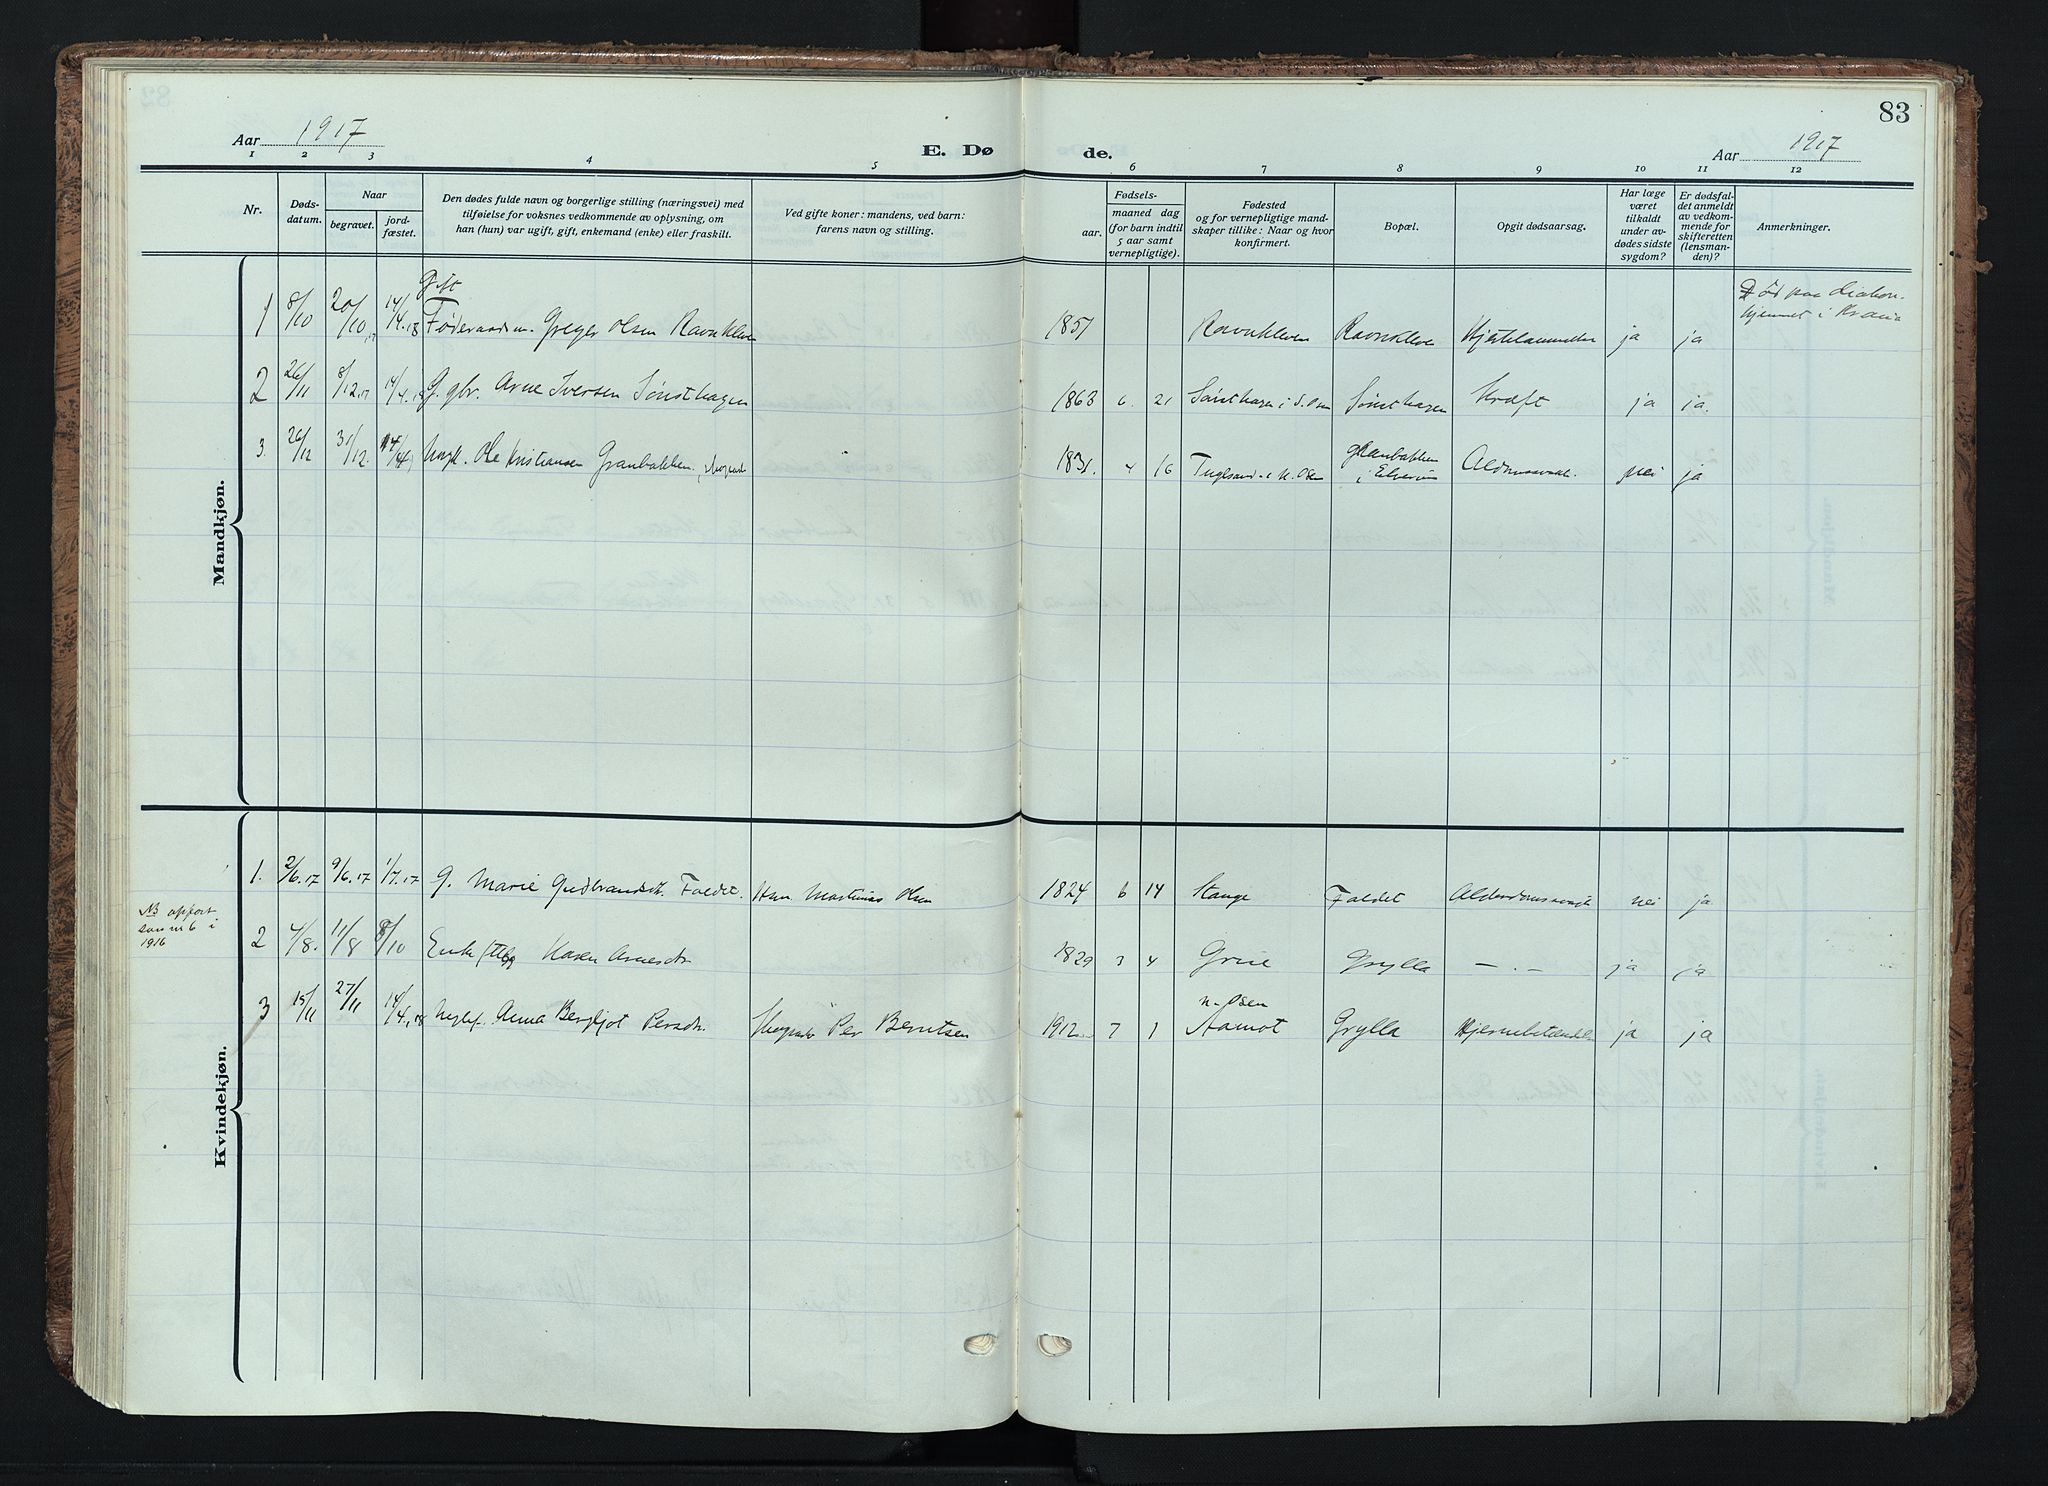 83
Aar 1917
E. Dø
de.
Aar 1917
1 2 3 4 5 6 7 8 9 10 11 12
Nr.
Døds-
datum.
Naar
begravet.
jord-
fæstet.
Den dødes fulde navn og borgerlige stilling (næringsvei) med
tilføielse for voksnes vedkommende av oplysning, om
han (hun) var ugift, gift, enkemand (enke) eller fraskilt.
Ved gifte koner: mandens, ved barn:
farens navn og stilling.
Fødsels-
aar.
maaned dag
(for barn indtil
5 aar samt
vernepligtige).
Fødested
og for vernepligtige mand-
skaper tillike: Naar og hvor
konfirmert.
Bopæl.
Opgit dødsaarsag.
Har læge
været
tilkaldt
under av-
dødes sidste
sygdom?
Er dødsfal-
det anmeldt
av vedkom-
mende for
skifteretten
(lensman-
den)?
Anmerkninger.
Mandkjøn.
Gift
1 8/10 20/10 17 14/4.18 Føderaadsm. Greger Olsen Ravnkleven 1851 Ravnkleven Ravnkleven ja ja Død paa diakon-
hjemmet i Krania
2 26/11 8/12.17 14/4.18 G. gbr. Arne Iversen Sønsthagen 1863 6. 21 Sønsthagen i S. Osen Sønsthagen Kræft ja ja.
3. 26/12 31/12. 14/4 Ole Kristiansen Granbakken, 1831. 4 16 i N. Osen Granbakken
i Elverum nei ja
Kvindekjøn.
1. 2/6.17 9/6.17 1/7.17 G. Marie Gudbrandsdt. Faldet. Hm. Martinus Olsen 1824 6 14 Stange Faldet Alderdomssvagh nei ja
NB opført
som nr 6 i
1916
2 4/8. 11/8 8/10 Enke Karen Arnesdtr 1829 3 4 Grue Grylla — . — ja ja
3 15/11 27/11 14/4.18 Anna Bergljot Persdtr. Per Berntsen 1912 7 1 N. Osen
Aamot Grylla Hjernebetændelse ja ja